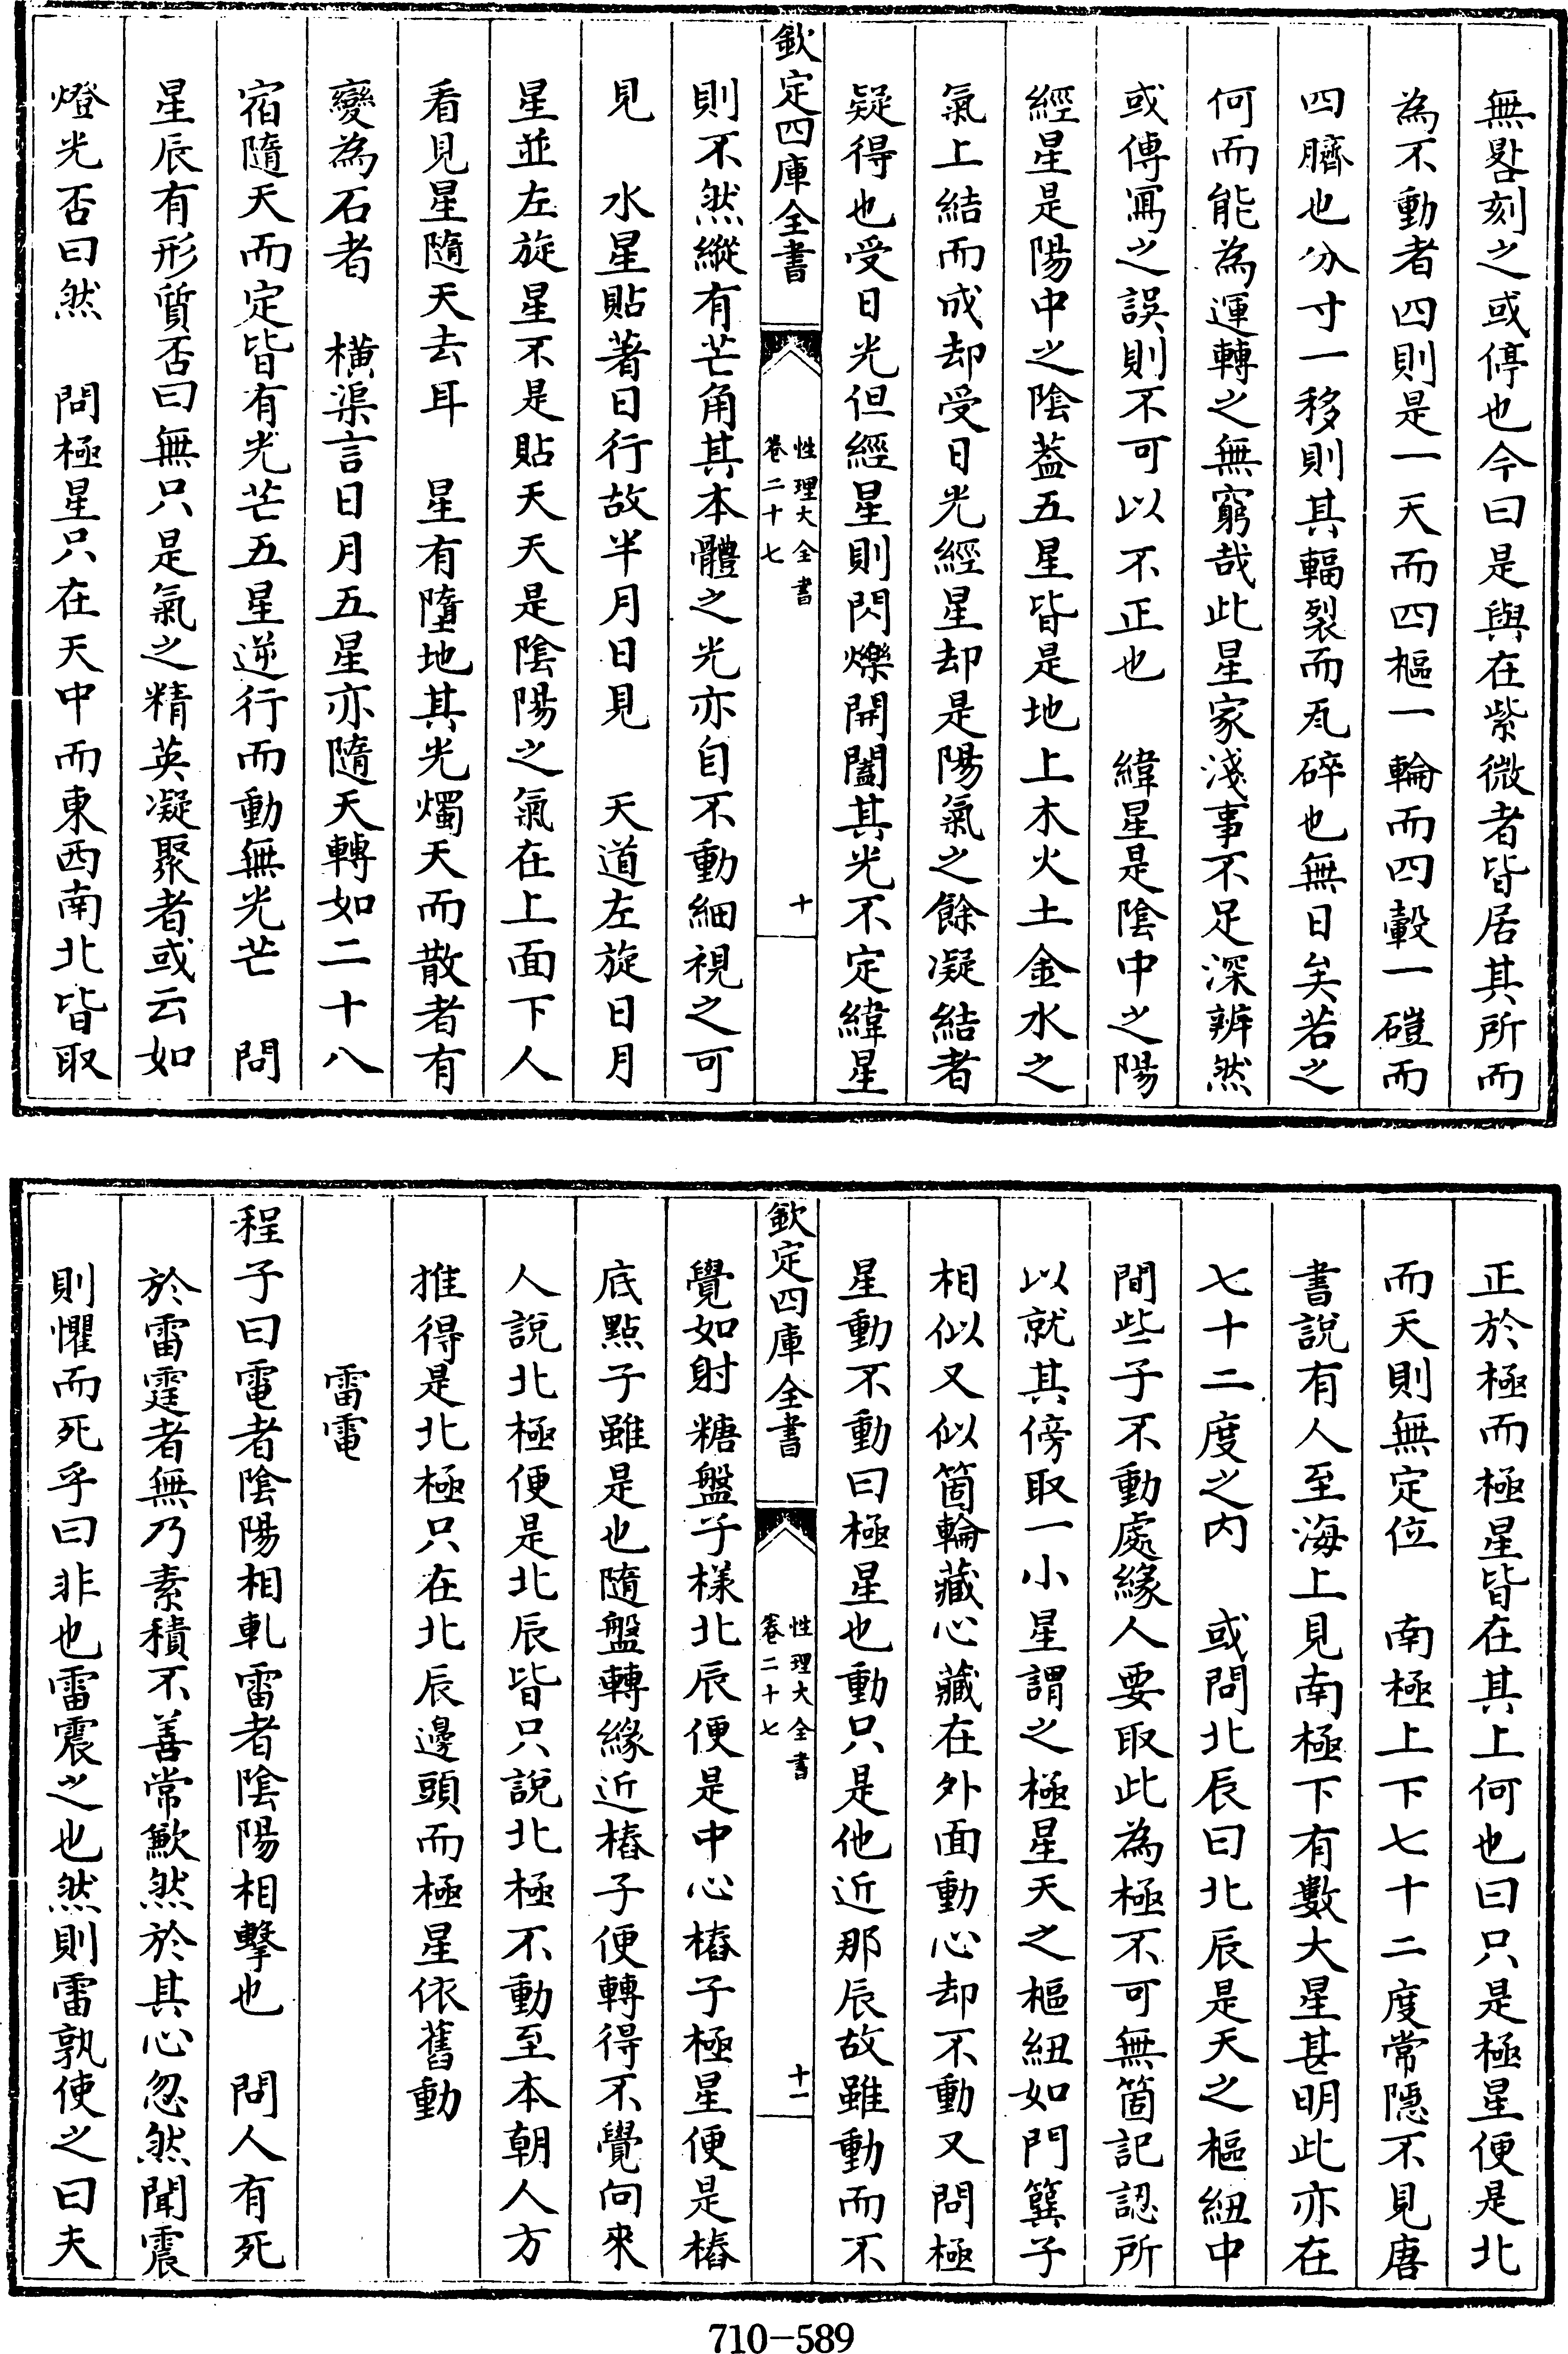 無晷刻之或停也今曰是與在紫微者皆居其所而
為不動者四則是一天而四樞一輪而四轂一磑而
四臍也分寸一移則其輻裂而瓦碎也無日矣若之
何而能為運轉之無窮哉此星家淺事不足深辨然
或傳寫之誤則不可以不正也　緯星是陰中之陽
經星是陽中之陰蓋五星皆是地上木火土金水之
氣上結而成却受日光經星却是陽氣之餘凝結者
疑得也受日光但經星則閃爍開闔其光不定緯星
欽定四庫全書
性理大全書
卷二十七
十
則不然縱有芒角其本體之光亦自不動細視之可
見　水星貼著日行故半月日見　天道左旋日月
星並左旋星不是貼天天是陰陽之氣在上面下人
看見星隨天去耳　星有墮地其光燭天而散者有
變為石者　橫渠言日月五星亦隨天轉如二十八
宿隨天而定皆有光芒五星逆行而動無光芒　問
星辰有形質否曰無只是氣之精英凝聚者或云如
燈光否曰然　問極星只在天中而東西南北皆取
正於極而極星皆在其上何也曰只是極星便是北
而天則無定位　南極上下七十二度常隱不見唐
書說有人至海上見南極下有數大星甚明此亦在
七十二度之内　或問北辰曰北辰是天之樞紐中
間些子不動處緣人要取此為極不可無箇記認所
以就其傍取一小星謂之極星天之樞紐如門簨子
相似又似箇輪藏心藏在外面動心却不動又問極
星動不動曰極星也動只是他近那辰故雖動而不
欽定四庫全書
性理大全書
卷二十七
十一
覺如射糖盤子樣北辰便是中心樁子極星便是樁
底點子雖是也隨盤轉緣近樁子便轉得不覺向來
人說北極便是北辰皆只說北極不動至本朝人方
推得是北極只在北辰邊頭而極星依舊動
雷電
程子曰電者陰陽相軋雷者陰陽相擊也　問人有死
於雷霆者無乃素積不善常歉然於其心忽然聞震
則懼而死乎曰非也雷震之也然則雷孰使之曰夫
710-589